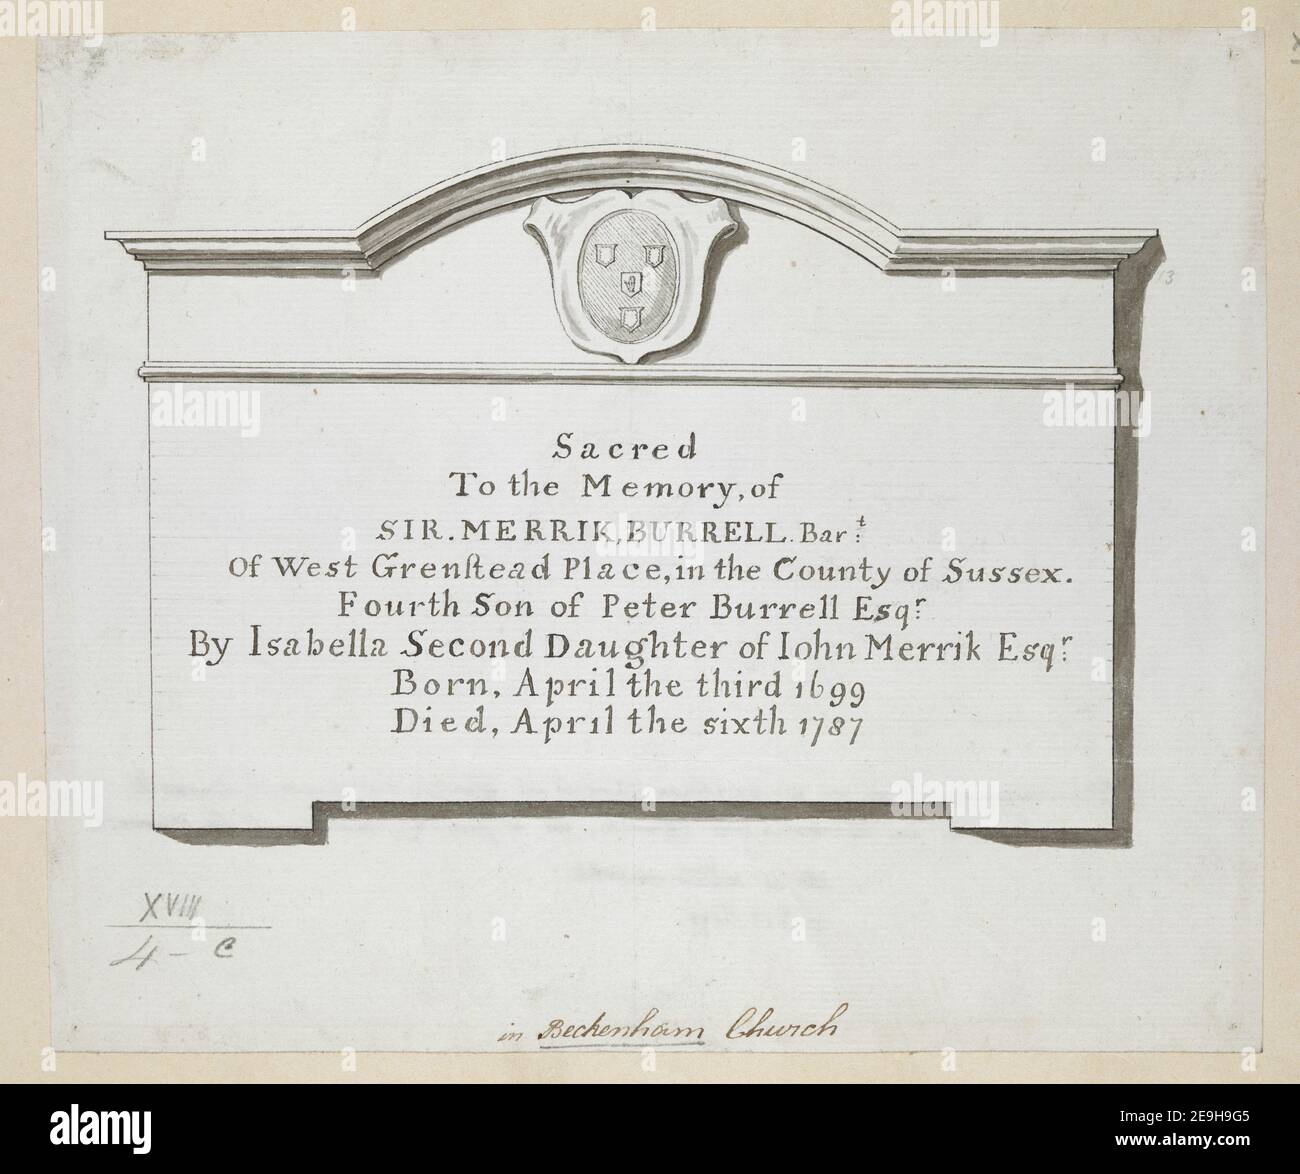 Sacred
To the Memory, of
SIR. MERRIK, BURRELL. Bar.t
Of West Grenſtead Place, in the County of Sussex.
Fourth Son of Peter Burrell Esqr.
By Isabella Second Daughter of Iohn Merrik Esqr.
Born, April the third 1699
Died, April the sixth 1787
13
XVIII
4 - c
in Beckenham Church
alamy
alamy
Image ID: 2E9H9G5
www.alamy.com